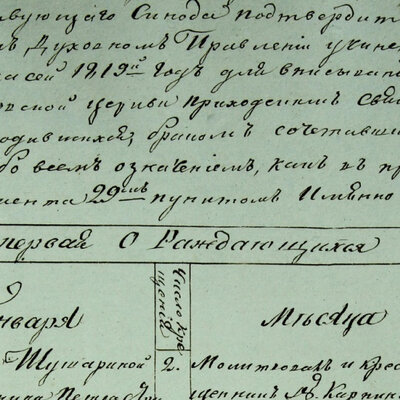 вующаго Синода подтвердит
въ Духовномъ Правленіи учине
на сей 1819й годъ для вписыван
вской церкви приходскимъ свящ
родившихся, бракомъ сочетавши
бо всемъ означеніемъ, какъ въ пр
мента 29мъ пунктомъ Имянно
первая О Раждающихся
нваря
Число кре
щенія
Мѣсяца
Шушариной
2.
Молитвовалъ и крес
щенникъ